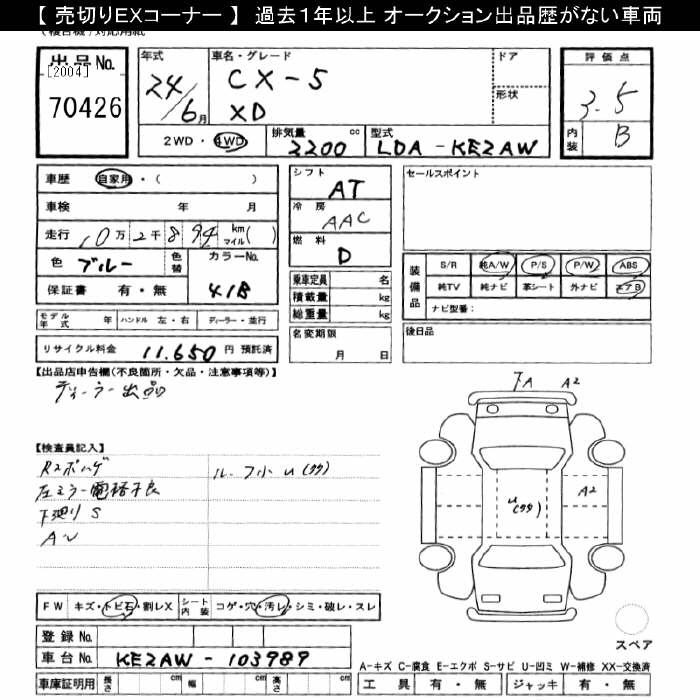 【 売切りEXコーナー 】 過去１年以上 オークション出品歴がない車両
出品No.
[2004]
70426
年式
24/6月
車名・グレード
CX-5
XD
ドア
形状
2WD・4WD
排気量 2200 cc
型式 LDA-KE2AW
評価点
3.5
内装 B
車歴 自家用・( )
車検 年 月
走行 10万2千894 km マイル( )
色 ブルー 色替
カラーNo. 41B
保証書 有・無
モデル年式 年 ハンドル 左・右 ディーラー・並行
リサイクル料金 11,650 円 預託済
シフト AT
冷房 AAC
燃料 D
乗車定員 名
積載量 kg
総重量 kg
名変期限 月 日
セールスポイント
装備品
S/R 純A/W P/S P/W ABS
純TV 純ナビ 革シート 外ナビ エアB
ナビ型番：
後日品
【出品店申告欄(不良箇所・欠品・注意事項等)】
ディーラー出品
【検査員記入】
左ミラー電格不良
下廻りS
ルーフ小U(多)
下A A2
U(多)
A2
FW キズ・トビ石・割レX シート内装 コゲ・穴・汚レ・シミ・破レ・スレ
登録No.
車台No. KE2AW-103989
車庫証明用 長さ cm 幅 cm 高さ cm
スペア
A-キズ C-腐食 E-エクボ S-サビ U-凹ミ W-補修 XX-交換済
工具 有・無 ジャッキ 有・無